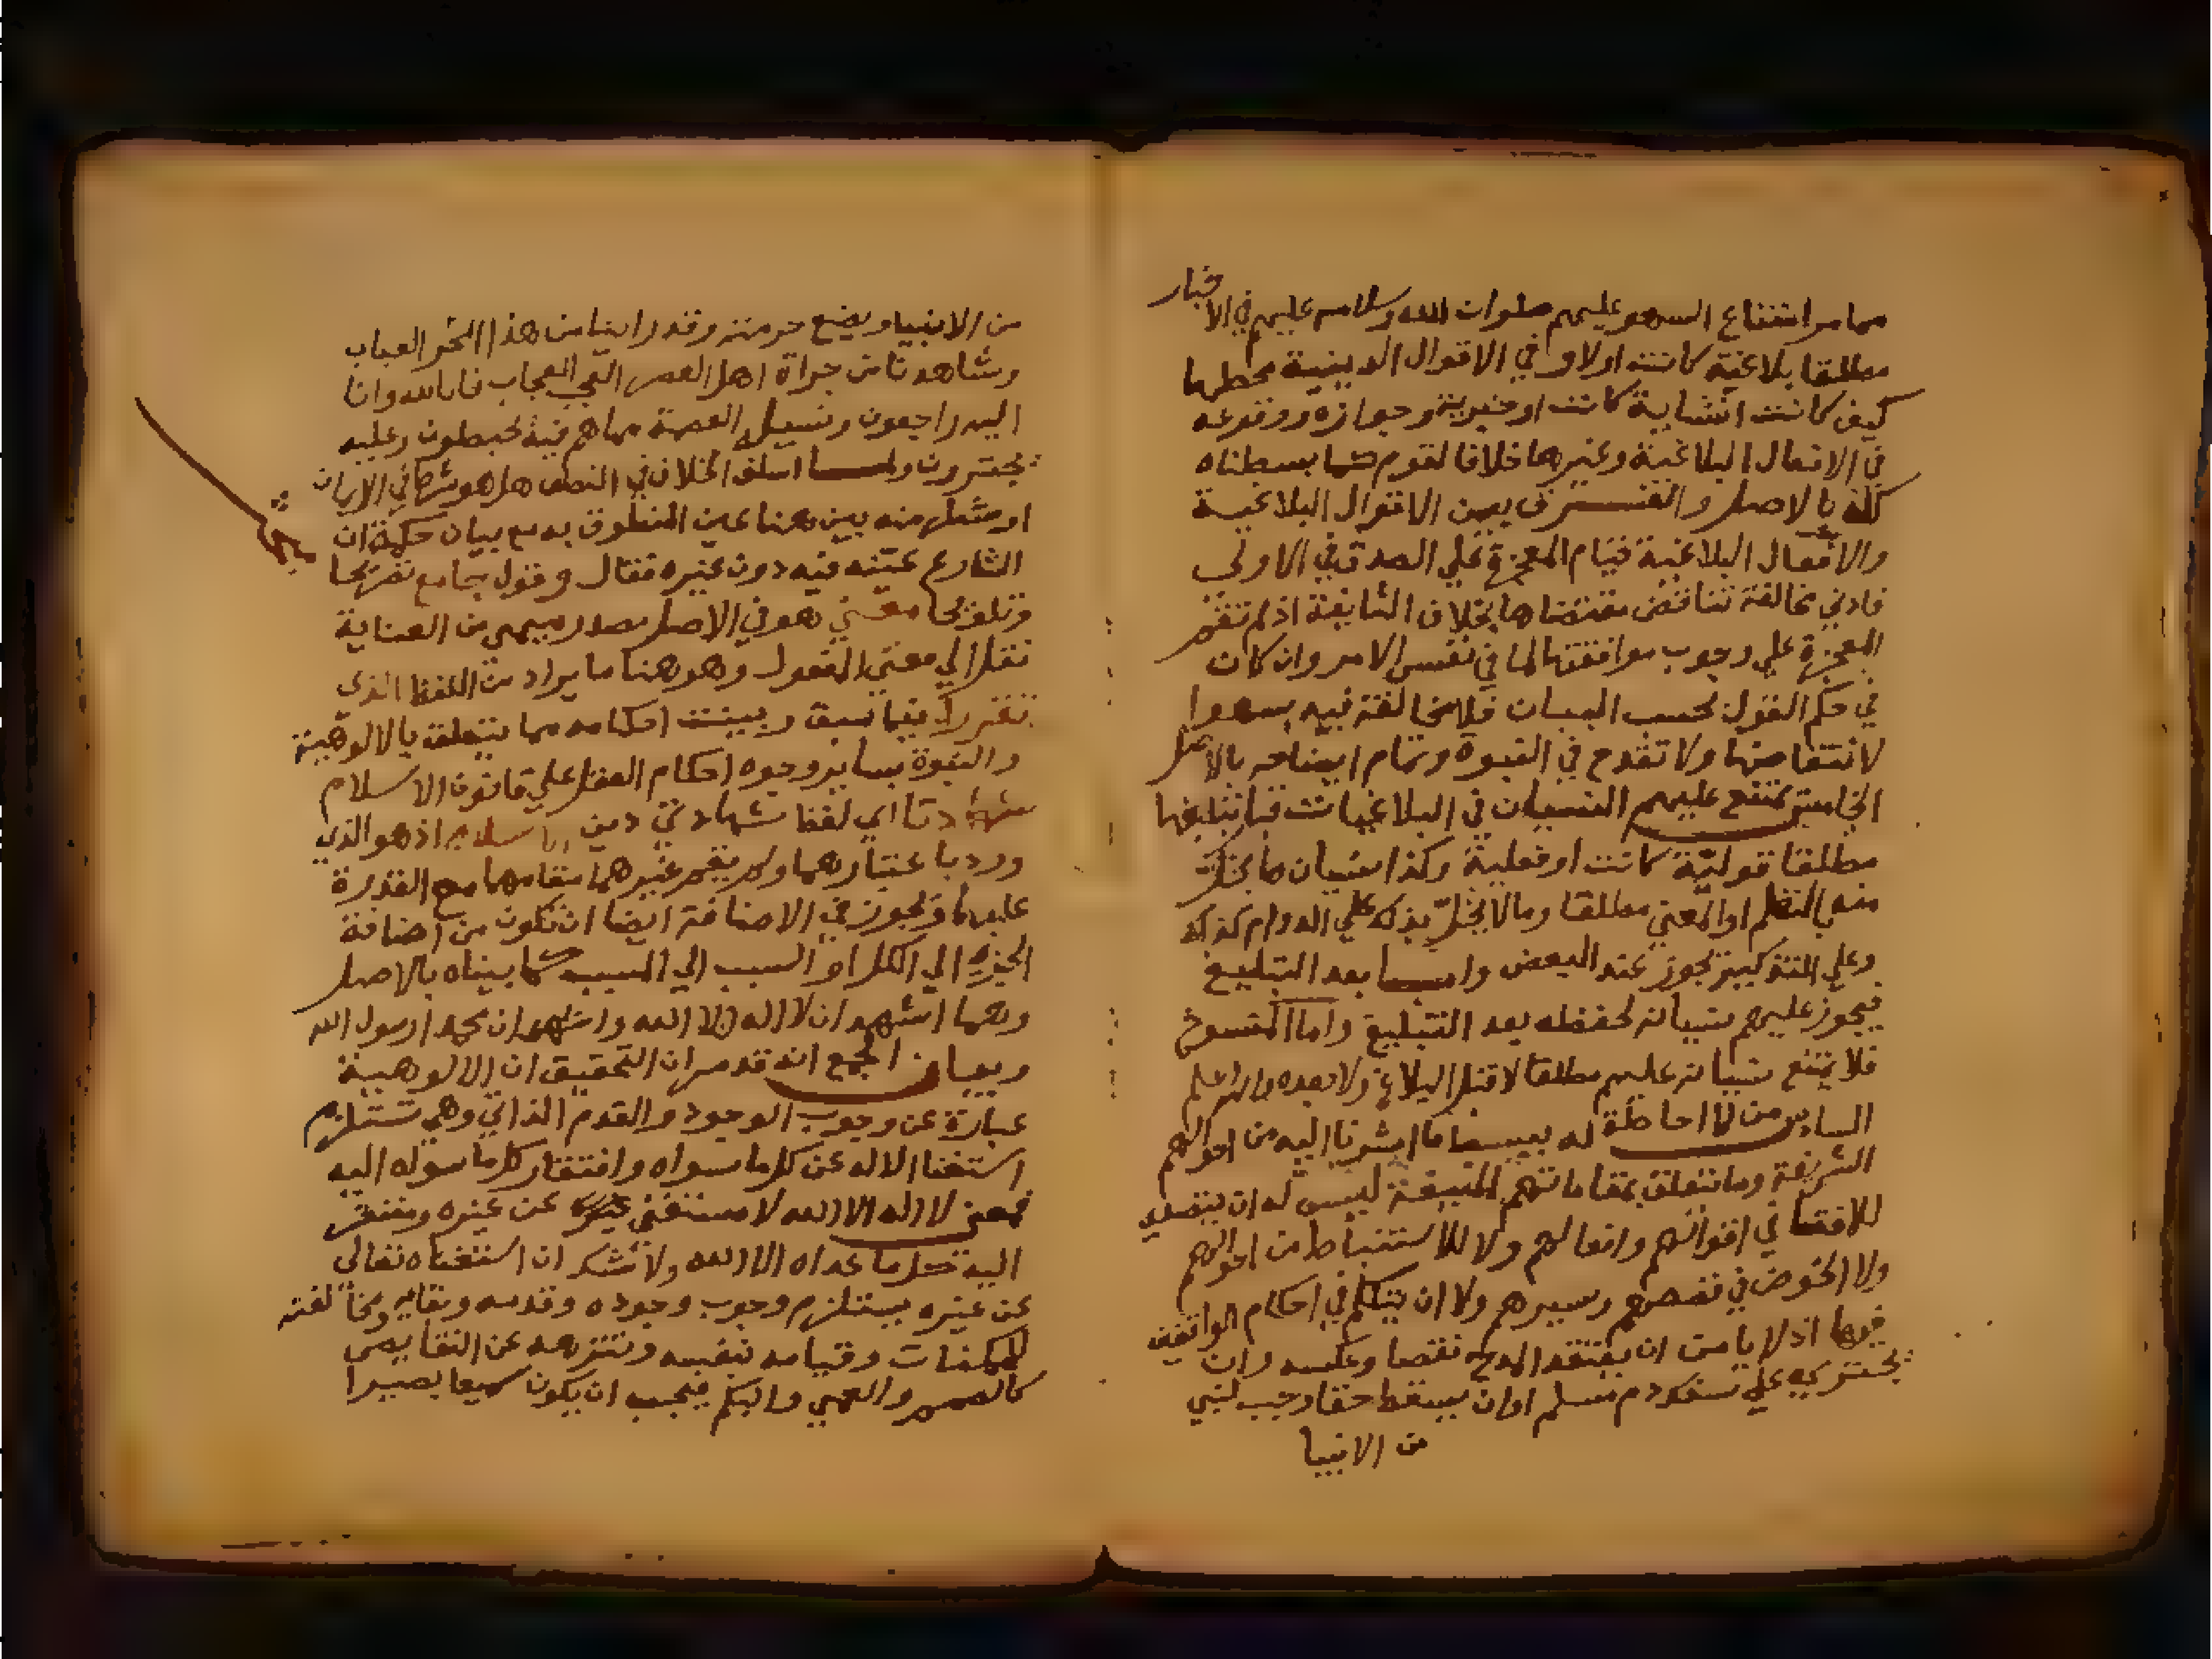 مما مر امتناع السهو عليهم صلوات الله وسلامه عليهم في الاخبار
مطلقا بلاغية كانت اولا وفي الاقوال الدينية محطها
كيف كانت انشاية كانت او خبرية وجوازه ووقوعه
في الافعال البلاغية وغيرها خلافا لقوم كما بسطناه
كله بالاصل والفرق بين الاقوال البلاغية
والافعال البلاغية قيام المعجزة علي الصدق في الاولي
فادني مخالفة تناقض مقتضاها بخلاف الثانية اذ لم تقم
المعجزة علي وجوب موافقتها لما في نفس الامر وان كان
في حكم القول بحسب البيان فلا مخالفة فيه سهوا
لانتقاضها ولا تقدح في النبوة وتمام ايضاحه بالاصل
الخامس يمتنع عليهم النسيان في البلاغيات قبل تبليغها
مطلقا قولية كانت او فعلية وكذا نسيان ما يختل
منه النظم او المعني مطلقا وما لا يخل بذكه علي الدوام كذلك
وعلي التذكير يجوز عند البعض واما بعد التبليغ
فيجوز عليهم نسيانه لحفظه بعد التبليغ واما المنسوخ
فلا يمتنع نسيانه عليهم مطلقا لا قبل البلاغ ولا بعده والله اعلم
السادس من لا احاطة له ببعض ما اشرنا اليه من احوالهم
الشريفة وما تتعلق بمقاماتهم المنيفة ليس له ان يتصدي
للافتا في اقوالهم وافعالهم ولا للاستنباط من احوالهم
ولا الخوض في قصصهم وسيرهم ولا ان يتكلم في احكام الواقفين
فيها اذ لا يامن ان يعتقد المدح نقصا وعكسه وان
يجتري علي سفك دم مسلم او ان يسقط حقا وجب لنبي
من الانبيا
من الانبيا ويضع حرمته وقد راينا من هذا النحو العباب
وشاهدنا من جراة اهل العصر العجب العجاب فانا لله وانا
اليه راجعون ونسيله العصمة مما هم فيه يخبطون وعليه
يجترون ولما اسلف الخلاف في النطق هل هو شرط في الايمان
او شطر منه بين هنا عين المنطوق به مع بيان حكمة ان
الشارع عينه فيه دون غيره فقال وقول جامع تصريحا
وتلويحا معني هو في الاصل مصدر ميمي من العناية
نقل الي معني المفعول وهو هنا ما يراد من اللفظ الذي
تقرر فيما سبق وبينت احكامه مما يتعلق بالالوهية
والنبوة بساير وجوه احكام العقل علي قانون الاسلام
شهادتا اي لفظ شهادتي دين الاسلام اذ هو الذي
ورد باعتبارهما ولم يقم غيرهما مقامهما مع القدرة
عليهما ويجوز في الاضافة ايضا ان تكون من اضافة
الجزء الي الكل او السبب الي المسبب كما بيناه بالاصل
وهما اشهد ان لا اله الا الله واشهد ان محمدا رسول الله
وبيان الجمع انه قد مر ان التحقيق ان الالوهية
عبارة عن وجوب الوجود والقدم الذاتي وهي تستلزم
استغنا الاله عن كل ما سواه وافتقار كل ما سواه اليه
فمعني لا اله الا الله لا مستغني عن غيره ومفتقر
اليه كل ما عداه الا الله ولا شك ان استغناه تعالي
عن غيره يستلزم وجوب وجوده وقدمه وبقايه ومخالفته
للممكنات وقيامه بنفسه وتنزهه عن النقايص
كالصمم والعمي والبكم فيجب ان يكون سميعا بصيرا